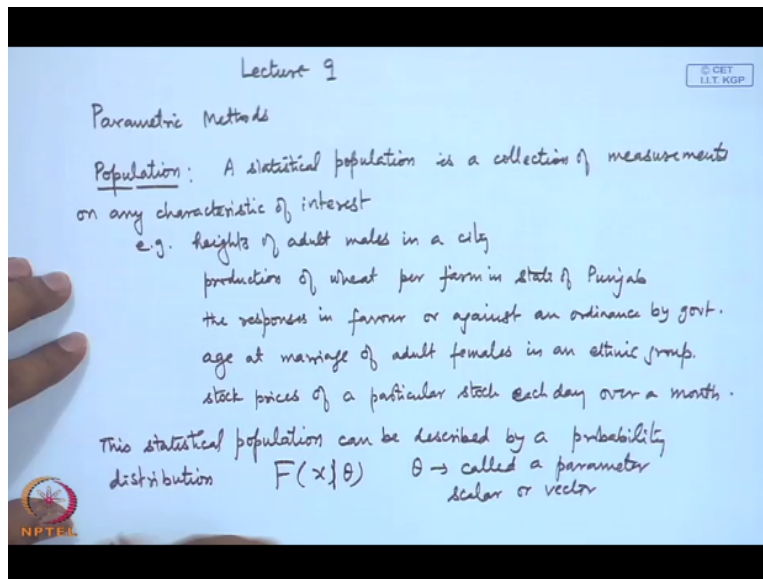 Lecture 9
© CET
I.I.T. KGP
Parametric Methods
Population: A statistical population is a collection of measurements
on any characteristic of interest
e.g. heights of adult males in a city
production of wheat per farm in state of Punjab
the responses in favour or against an ordinance by govt.
age at marriage of adult females in an ethnic group.
stock prices of a particular stock each day over a month.
This statistical population can be described by a probability
distribution F(x|θ) θ → called a parameter
scalar or vector
NPTEL